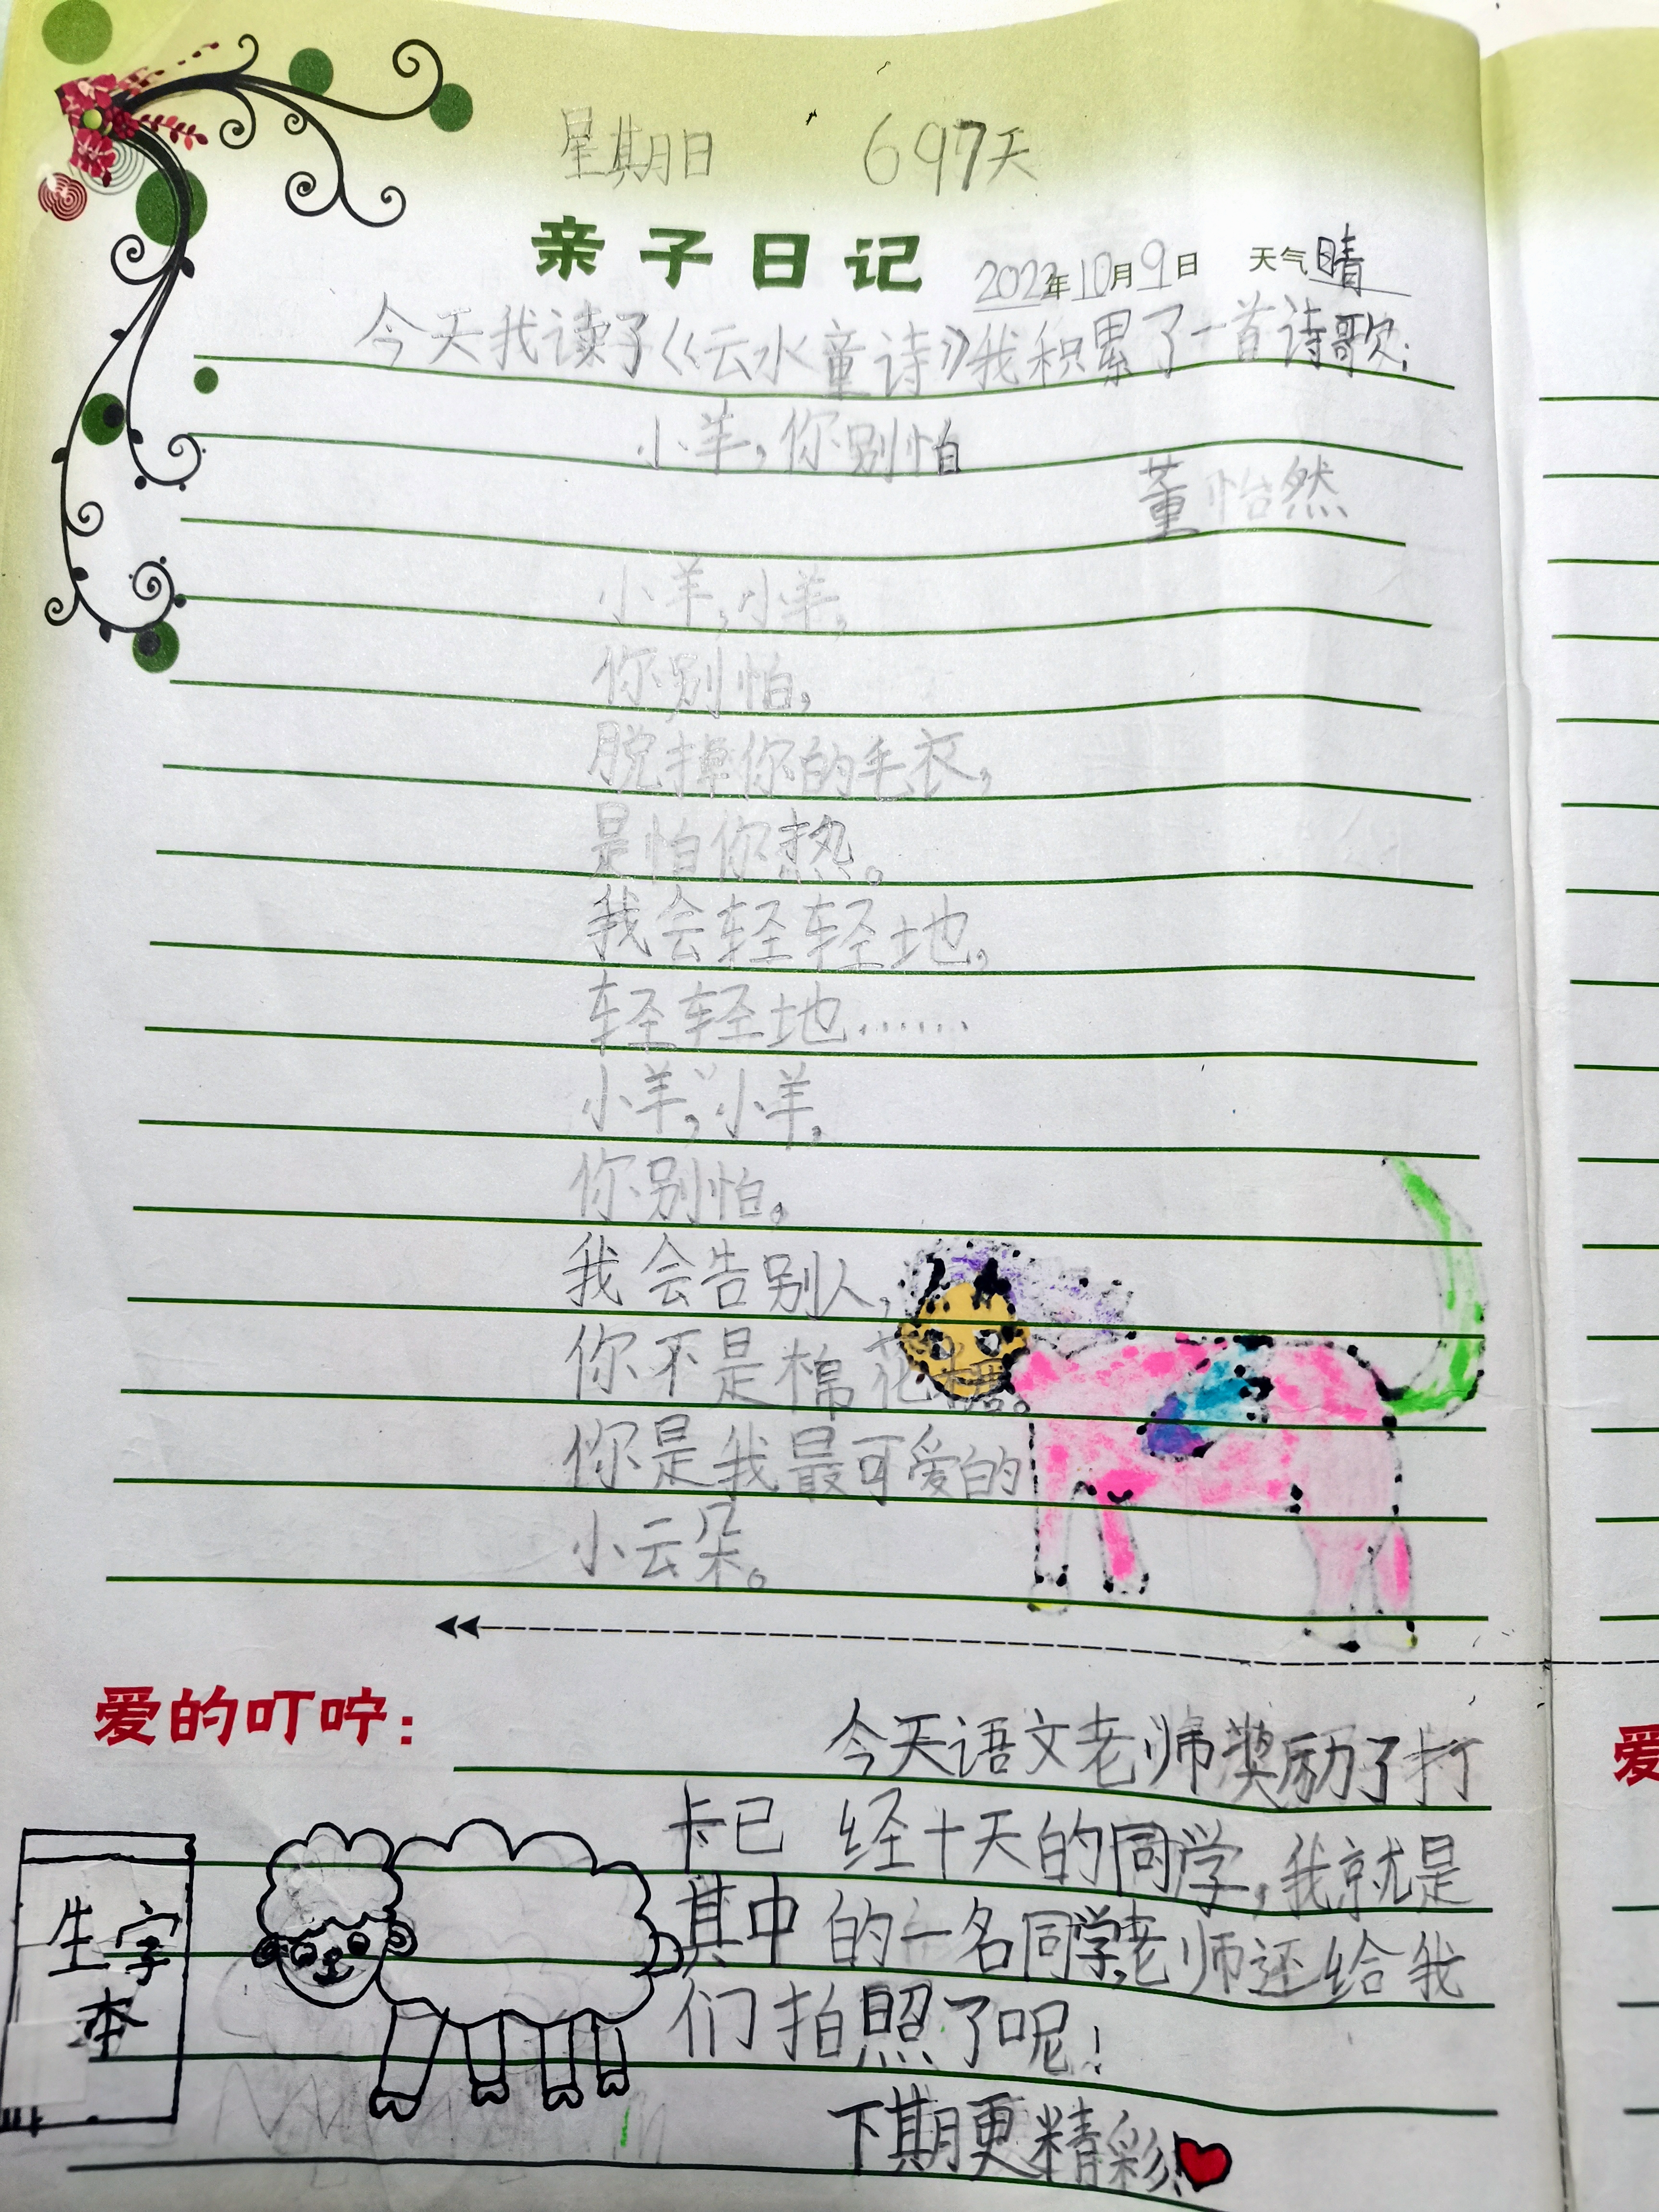 星期日 697天
亲子日记 2022年10月9日 天气晴
今天我读了《云水童诗》我积累了一首诗歌:
小羊,你别怕
董怡然
小羊,小羊,
你别怕,
脱掉你的毛衣,
是怕你热。
我会轻轻地,
轻轻地……
小羊,小羊,
你别怕。
我会告别人,
你不是棉花糖。
你是我最可爱的
小云朵。
爱的叮咛:
今天语文老师奖励了打
卡已 经十天的同学,我就是
其中 的一名同学,老师还给我
们拍照了呢!
下期更精彩!
生字
本
爱